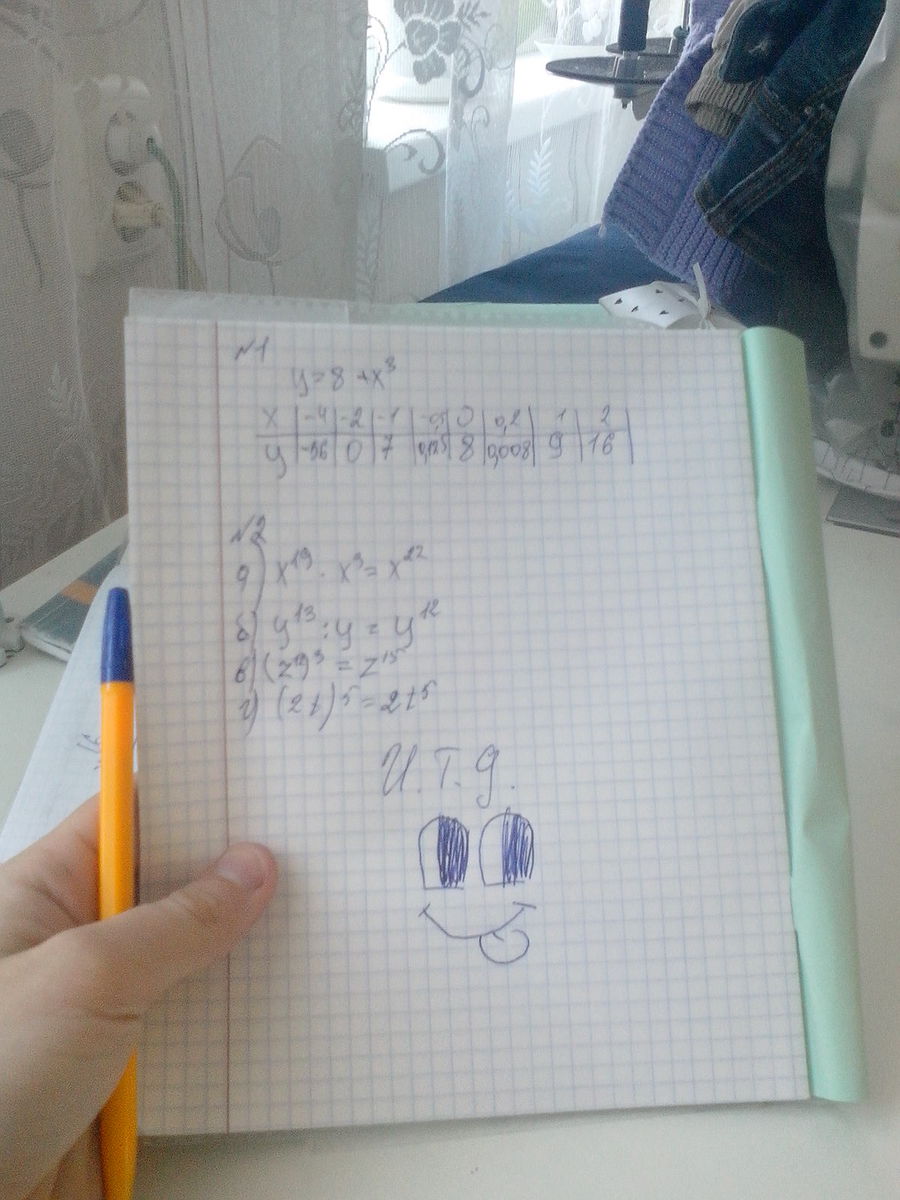 №1
y=8+x³
x | -4 | -2 | -1 | -0,5 | 0 | 0,2 | 1 | 2 |
y | -56 | 0 | 7 | 0,125 | 8 | 0,008 | 9 | 16 |
№2
а) x¹⁹ · x³ = x²²
б) y¹³ : y = y¹²
в) = z¹⁵
г) (2t)⁵ = 2t⁵
И.Т.д.